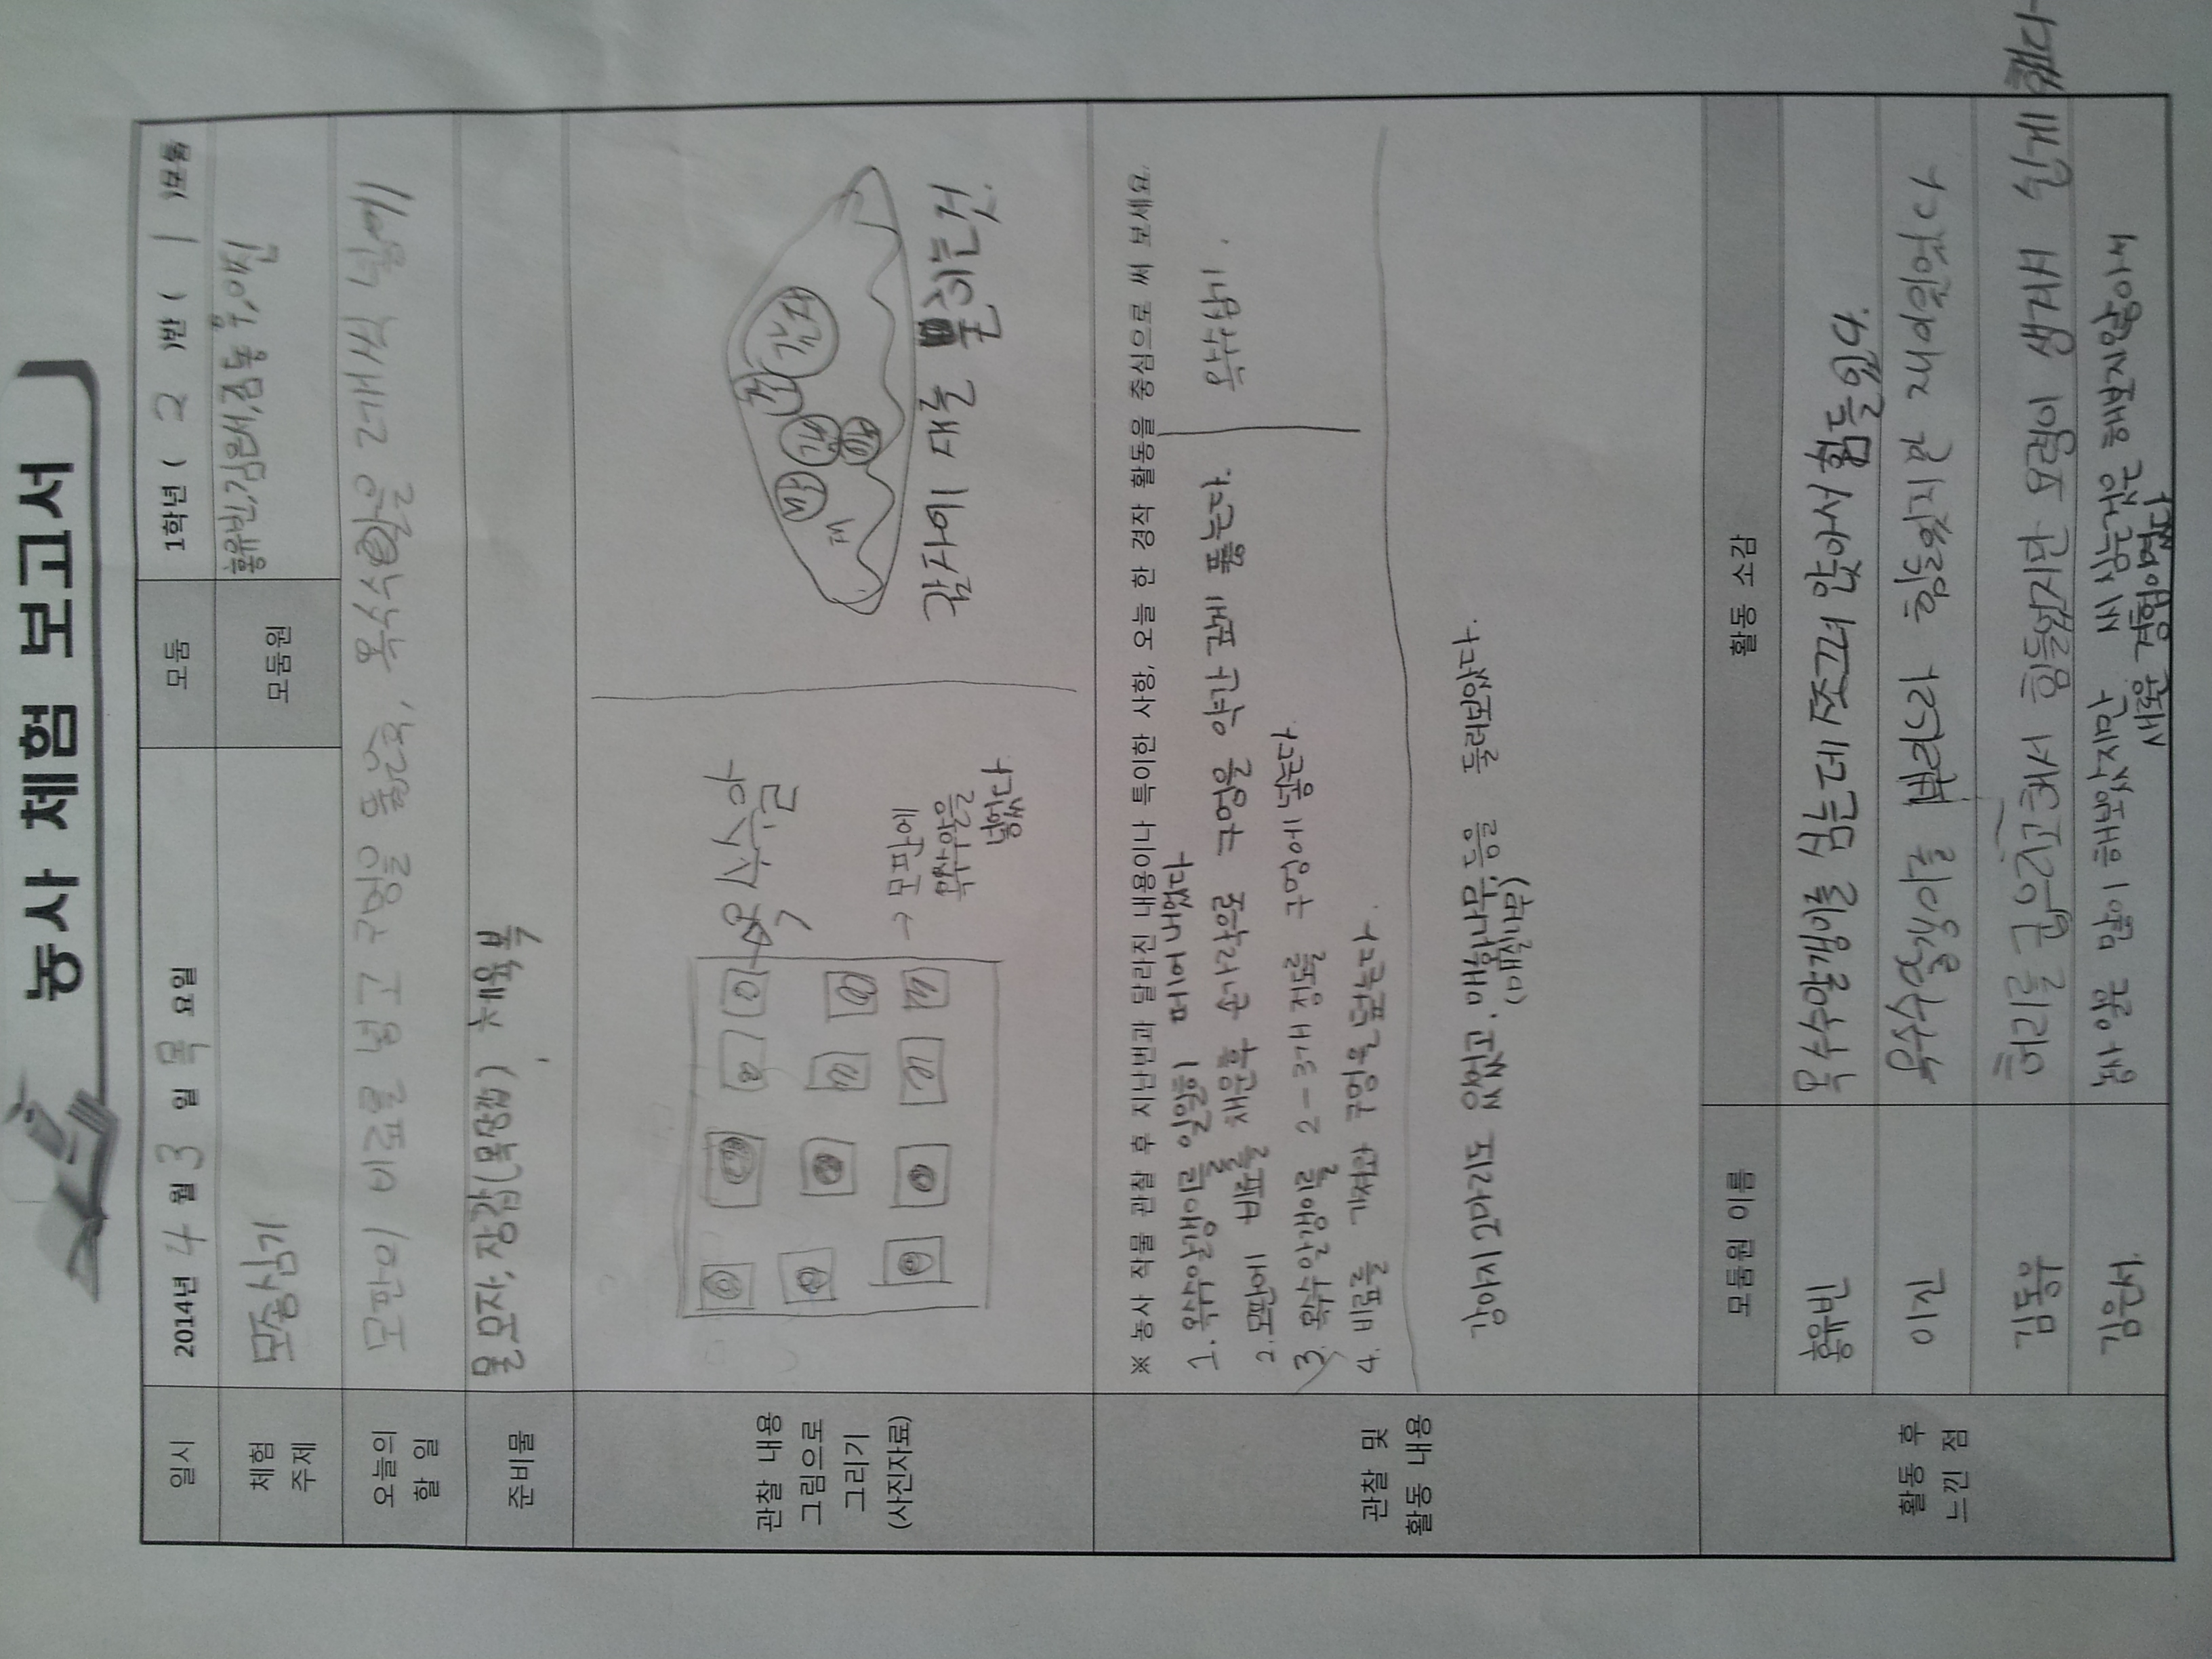 농사 체험 보고서
일시 2014년 4월 3일 목요일 모둠 1학년 ( 2 )반 ( 1 )모둠
체험 주제 모종심기 모둠원 홍유빈, 김윤서, 김동우, 이진
오늘의 할 일 모판의 비료를 넣고 구멍을 뚫은 옥수수알을 2개씩 넣는다
준비물 물, 모자, 장갑(목장갑) 체육복
관찰 내용
그림으로
그리기
(사진자료)
옥수수알
→ 모판에
옥수수알을
넣었다
감자
재
감자에 재를 묻히는것.
관찰 및
활동 내용
※ 농사 작물 관찰 후 지난번과 달라진 내용이나 특이한 사항, 오늘 한 경작 활동을 중심으로 써 보세요.
1. 옥수수알갱이를 일일히 떼어 내었다
2. 모판에 비료를 채운후 손가락으로 구멍을 약간 깊게 뚫는다
3. 옥수수알갱이를 2-3개 정도를 구멍에 넣는다
4. 비료를 가져와 구멍을 덮는다.
옥수수심기.
강아지 2마리도 있었고, 매화나무 등을 둘러보았다.
(매실나무)
활동 후
느낀 점
모둠원 이름 활동 소감
홍유빈 옥수수알갱이를 심는데 쪼그려 앉아서 힘들었다.
이진 옥수수알갱이를 때리느라 힘들었지만 재미있었다
김동우 허리를 굽으리고해서 힘들었지만 요령이 생겨서 쉽게 했다
김윤서 농사일을 많이 해보았지만 씨 심는일은 해본적이없어서
새로운 경험이였다